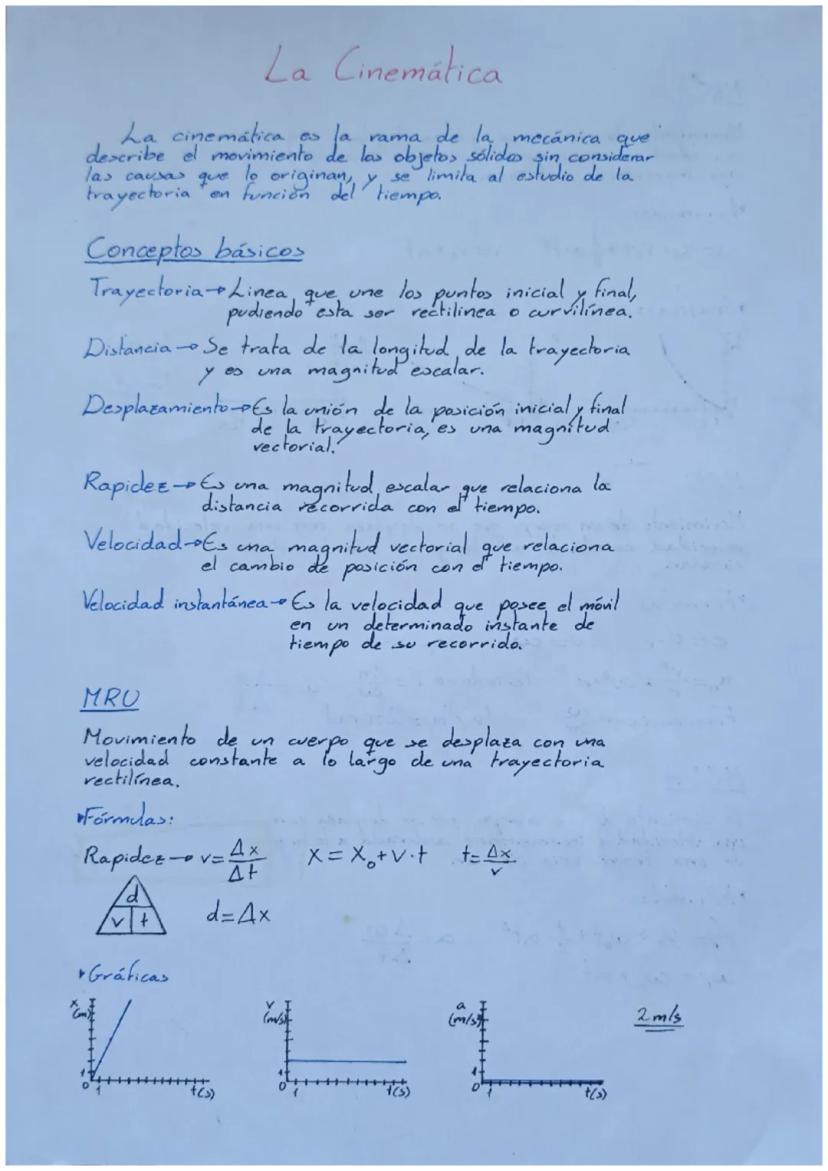 La Cinemática
La cinemática es la rama de la mecánica que
describe el movimiento de los objetos sólidos sin considerar
las causas que lo originan, y se limita al estudio de la
trayectoria en función del tiempo.
Conceptos básicos
Trayectoria → Linea que une los puntos inicial y final,
pudiendo esta ser rectilinea o curvilínea.
Distancia → Se trata de la longitud de la trayectoria
y es una magnitud escalar.
Desplazamiento → Es la unión de la posición inicial y final
de la trayectoria, es una magnitud
vectorial.
Rapidez → Es una magnitud escalar que relaciona la
distancia recorrida con el tiempo.
Velocidad → Es una magnitud vectorial que relaciona
el cambio de posición con el tiempo.
Velocidad instantánea → Es la velocidad que posee el móvil
en un determinado instante de
tiempo de su recorrido.
MRU
Movimiento de un cuerpo que se desplaza con una
velocidad constante a lo largo de una trayectoria
rectilínea.
Fórmulas:
Rapidez → v = Δx/Δt x = x₀ + v·t t = Δx/v
d
v t
d = Δx
Gráficas
x (m) 1 0 1 t(s)
v (m/s) 1 0 1 t(s)
a (m/s²) 1 0 1 t(s)
2 m/s